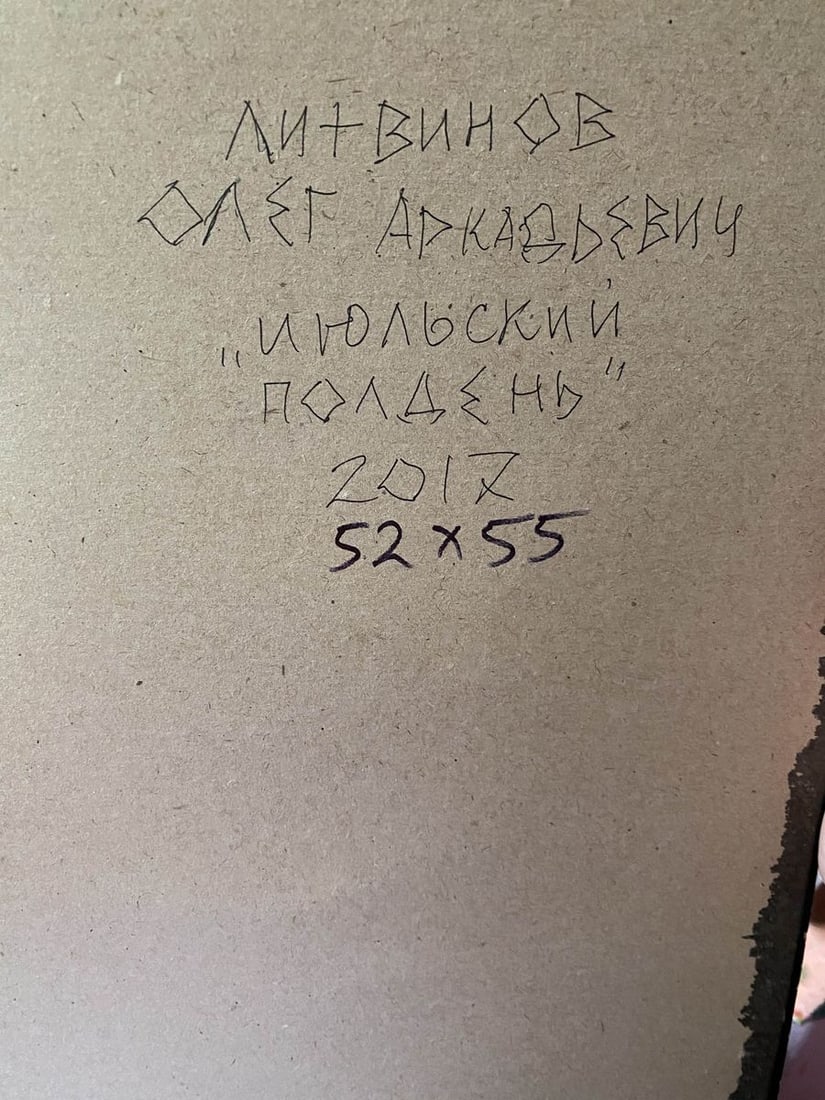 ЛИТВИНОВ
ОЛЕГ АРКАДЬЕВИЧ
„ИЮЛЬСКИЙ
ПОЛДЕНЬ"
2017
52 x 55